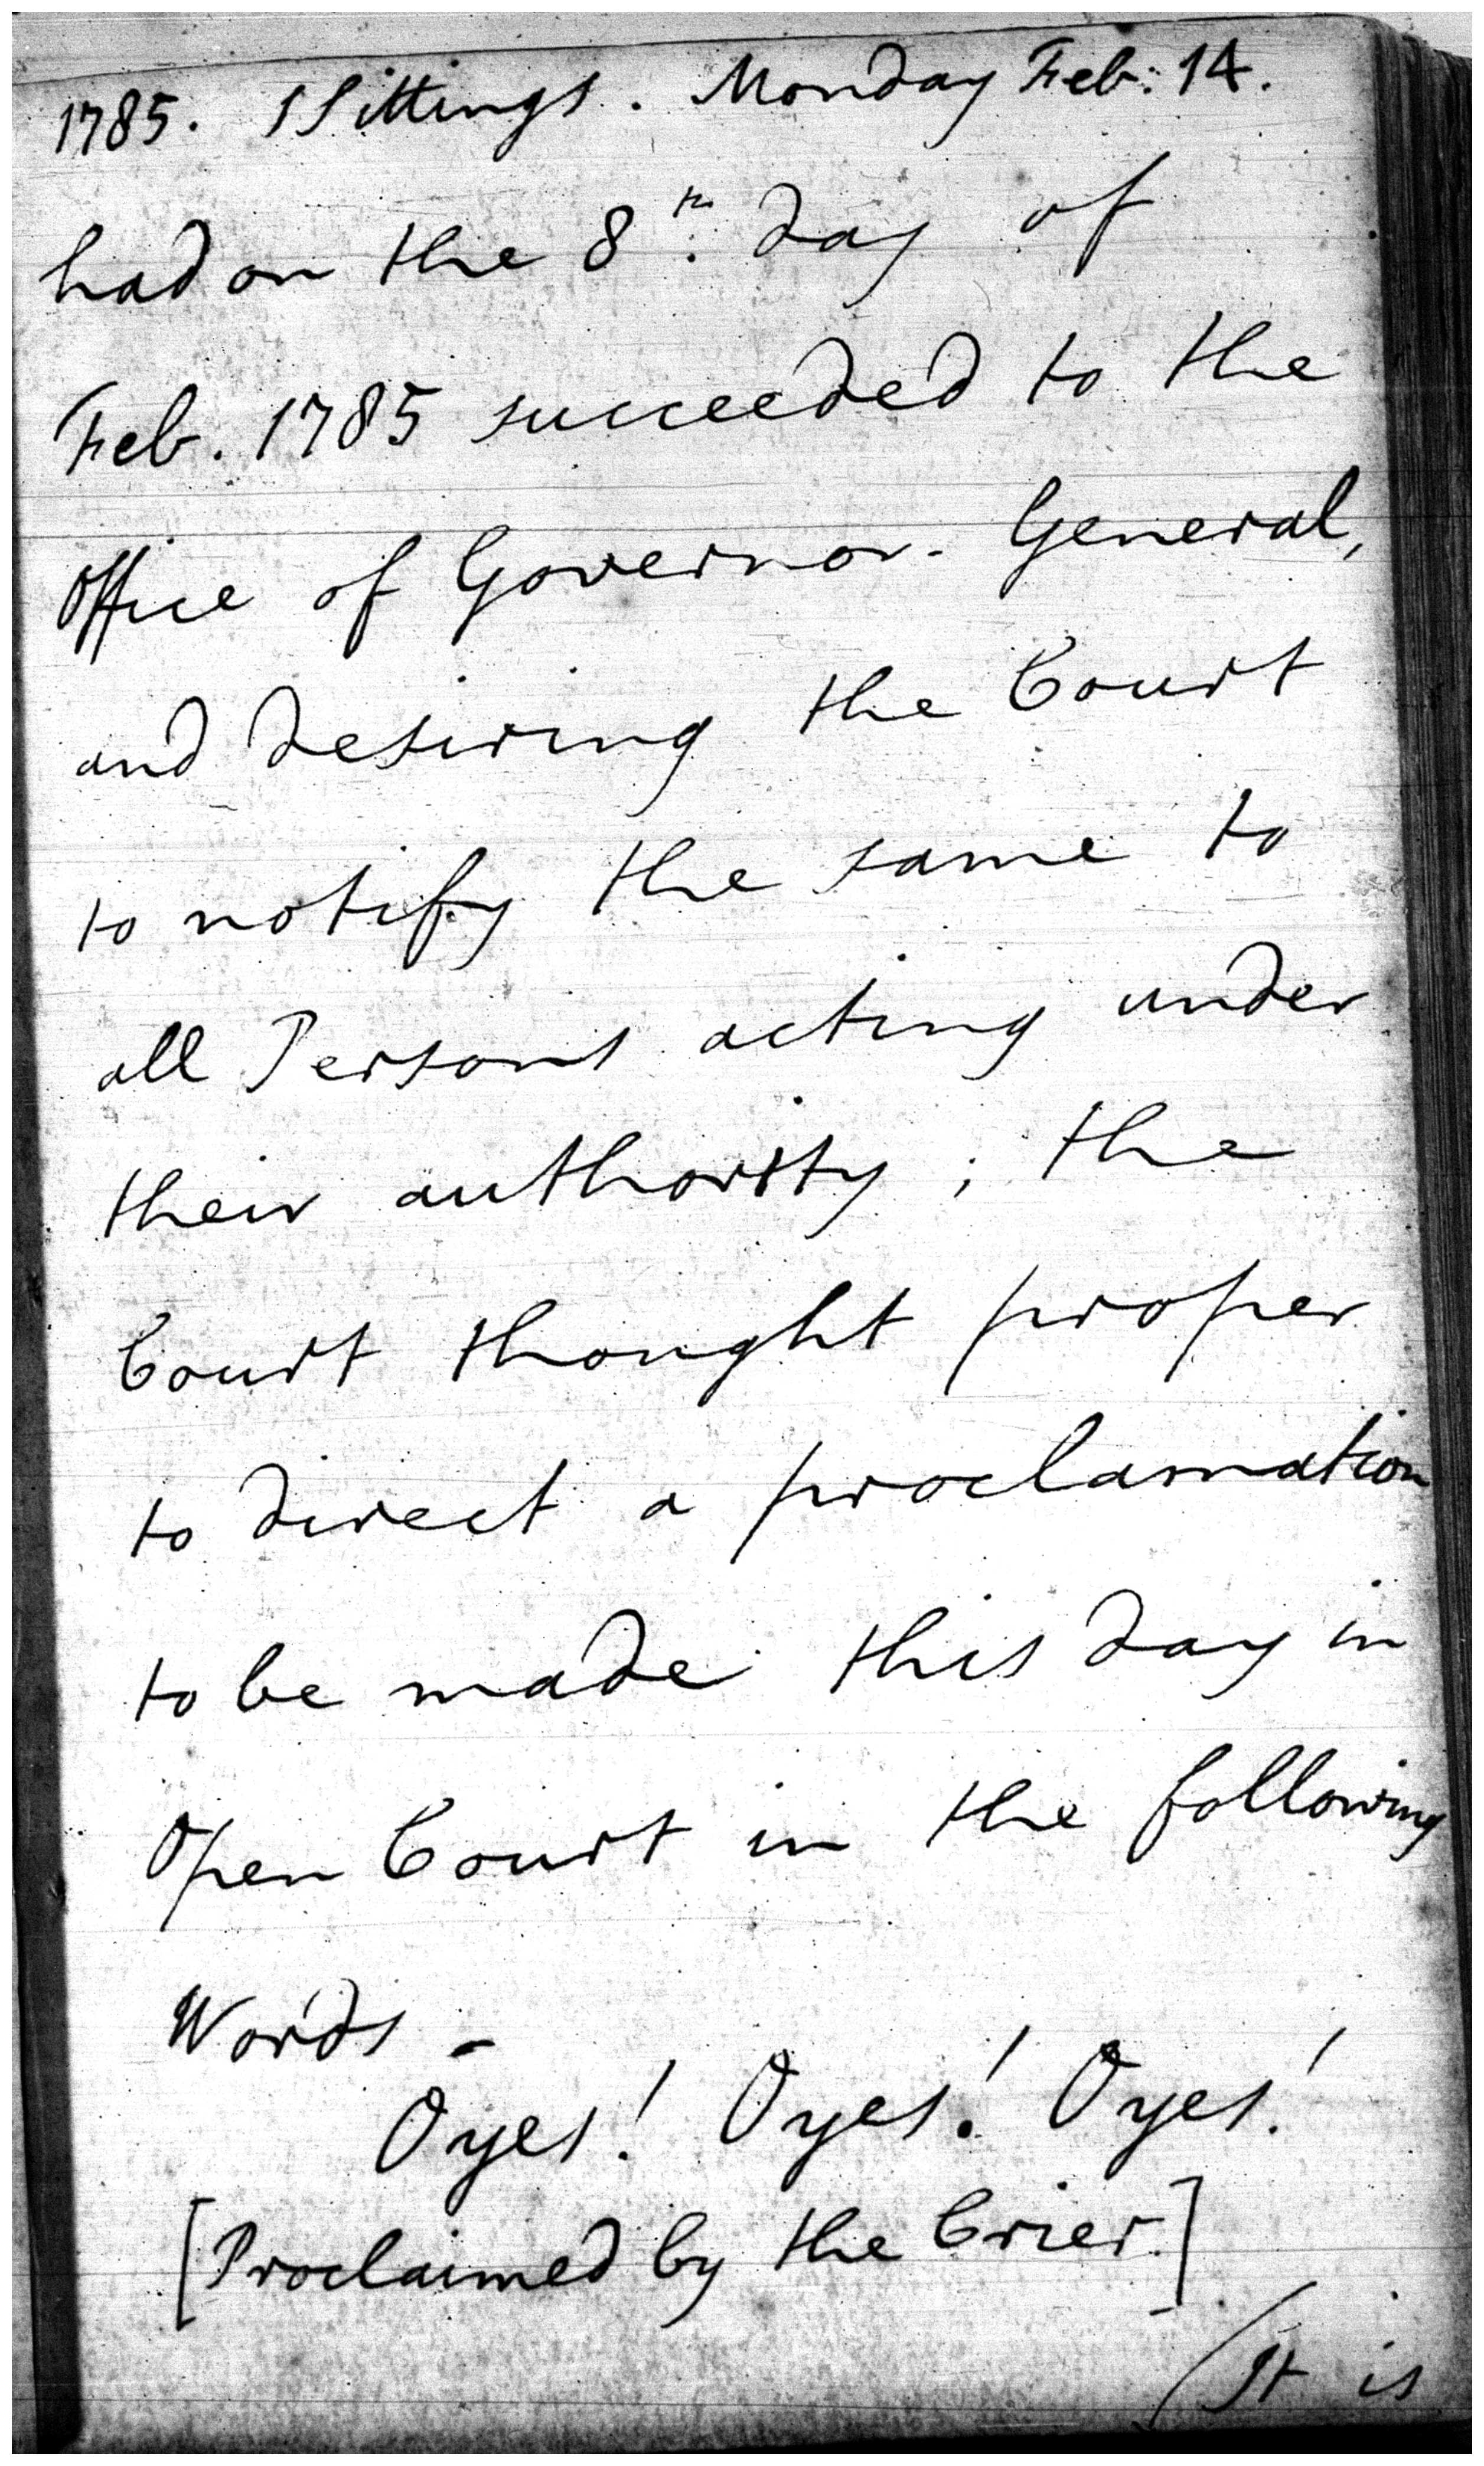 1785. Sittings. Monday Feb: 14.
had on the 8th. day of
Feb. 1785 succeeded to the
Office of Governor-General,
and desiring the Court
to notify the same to
all Persons acting under
their authority; the
Court thought proper
to direct a proclamation
to be made this day in
Open Court in the following
Words –
Oyes! Oyes! Oyes!
[Proclaimed by the Crier.]
(It is